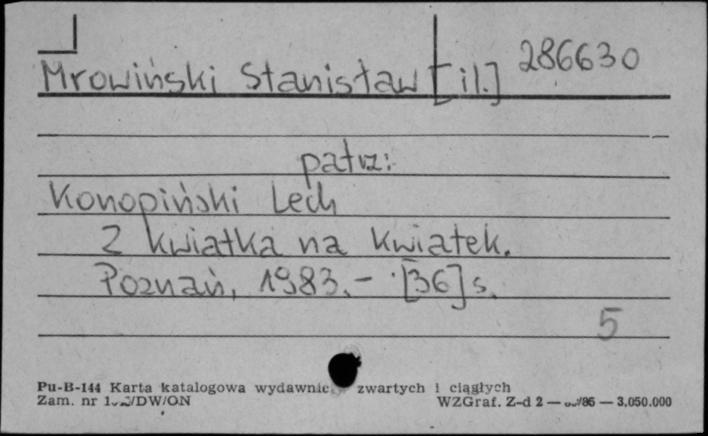 Mrowiński Stanisław [il.] 286630
patrz:
Konopiński Lech
Z kwiatka na kwiatek.
Poznań, 1983. - [36] s.
5
Pu-B-144 Karta katalogowa wydawnic zwartych i ciągłych
Zam. nr /DW/ON WZGraf. Z-d 2 — /86 — 3.050.000